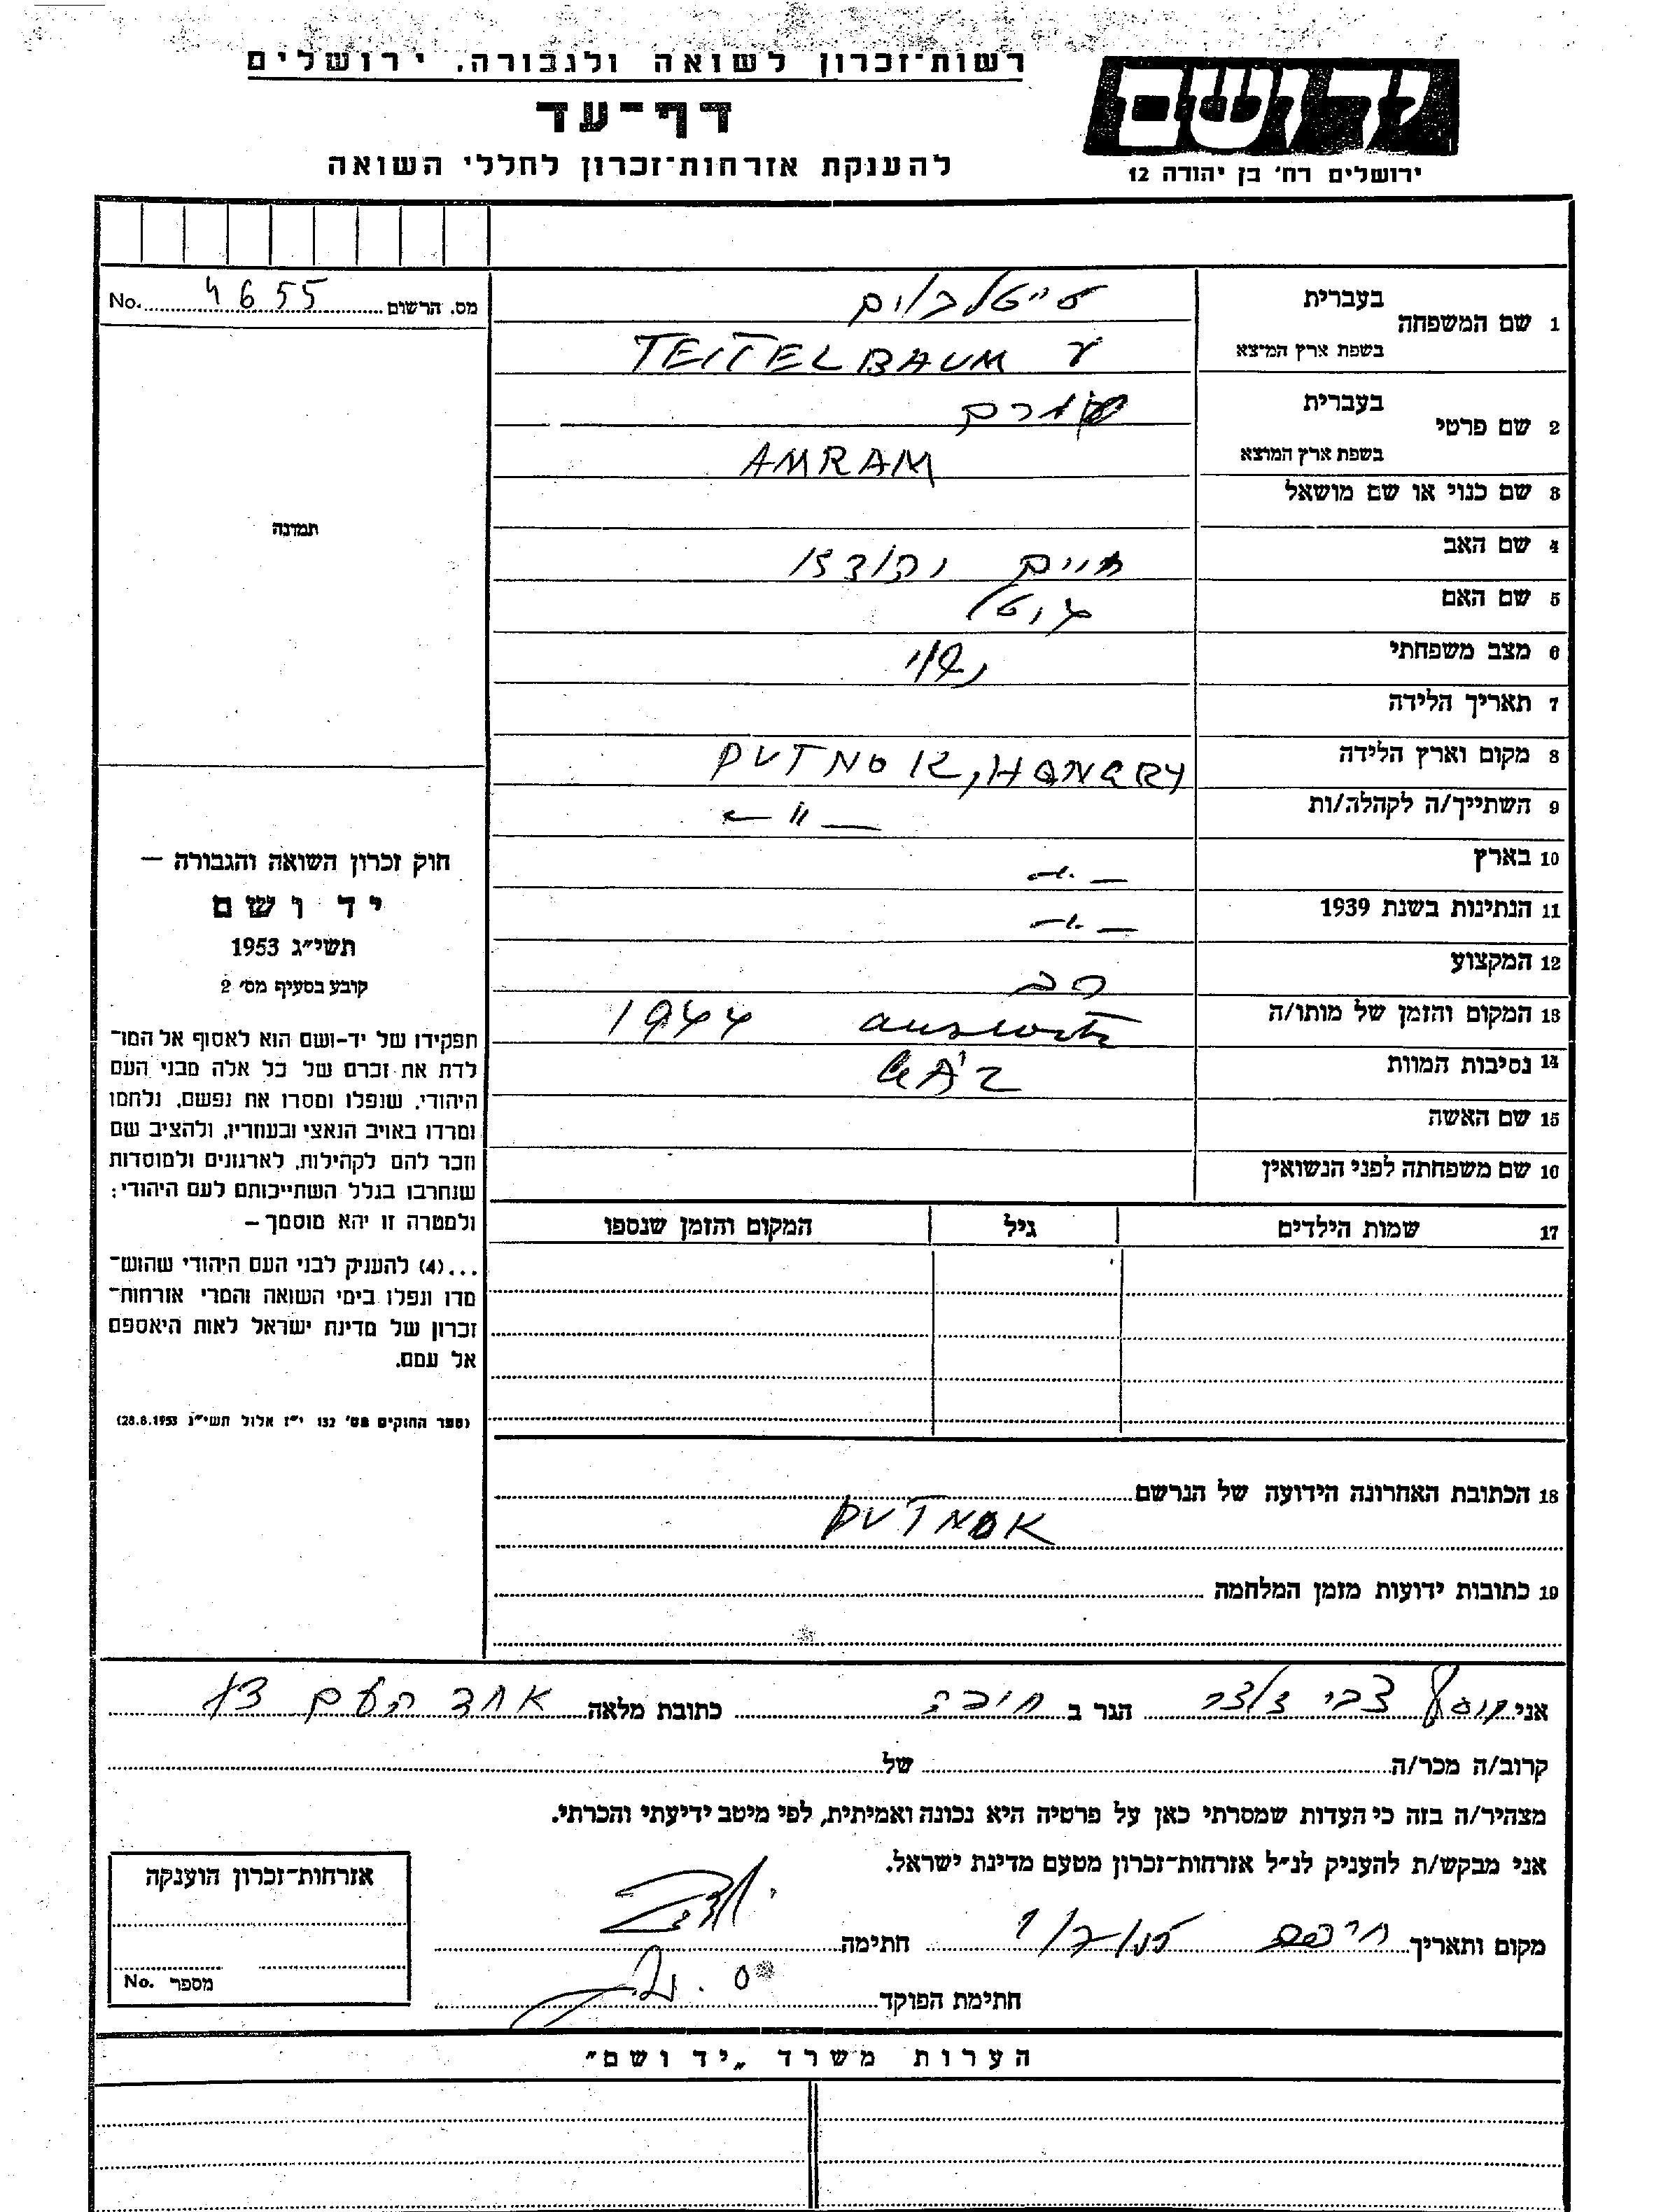 רשות־זכרון לשואה ולגבורה, ירושלים
דף־עד
להענקת אזרחות־זכרון לחללי השואה
יד ושם
ירושלים רח' בן יהודה 12
מס. הרשום 4655 No.
1 שם המשפחה
בעברית טייטלבוים
בשפת ארץ המוצא TEITELBAUM
2 שם פרטי
בעברית עמרם
בשפת ארץ המוצא AMRAM
3 שם כנוי או שם מושאל
4 שם האב חיים
5 שם האם
6 מצב משפחתי נשוי
7 תאריך הלידה
8 מקום וארץ הלידה PUTNOK, HONGRY
9 השתייך/ה לקהלה/ות — " —
10 בארץ — " —
11 הנתינות בשנת 1939 — " —
12 המקצוע רב
13 המקום והזמן של מותו/ה 1944
14 נסיבות המוות GÁZ
15 שם האשה
16 שם משפחתה לפני הנשואין
17 שמות הילדים גיל המקום והזמן שנספו
תמונה
חוק זכרון השואה והגבורה —
יד ושם
תשי״ג 1953
קובע בסעיף מס׳ 2
תפקידו של יד-ושם הוא לאסוף אל המו־
לדת את זכרם של כל אלה מבני העם
היהודי, שנפלו ומסרו את נפשם, נלחמו
ומרדו באויב הנאצי ובעוזריו, ולהציב שם
וזכר להם לקהילות, לארגונים ולמוסדות
שנחרבו בגלל השתייכותם לעם היהודי;
ולמטרה זו יהא מוסמך –
...(4) להעניק לבני העם היהודי שהוש־
מדו ונפלו בימי השואה והמרי אזרחות־
זכרון של מדינת ישראל לאות היאספם
אל עמם.
(ספר החוקים מס׳ 132 י״ז אלול תשי״ג 28.8.1953)
18 הכתובת האחרונה הידועה של הנרשם
PUTNOK
19 כתובות ידועות מזמן המלחמה
אני יוסף צבי הגר ב חיפה כתובת מלאה אחד העם
קרוב/ה מכר/ה של
מצהיר/ה בזה כי העדות שמסרתי כאן על פרטיה היא נכונה ואמיתית, לפי מיטב ידיעתי והכרתי.
אני מבקש/ת להעניק לנ״ל אזרחות־זכרון מטעם מדינת ישראל.
מקום ותאריך חיפה חתימה
חתימת הפוקד
אזרחות־זכרון הוענקה
מספר No.
הערות משרד „יד ושם״